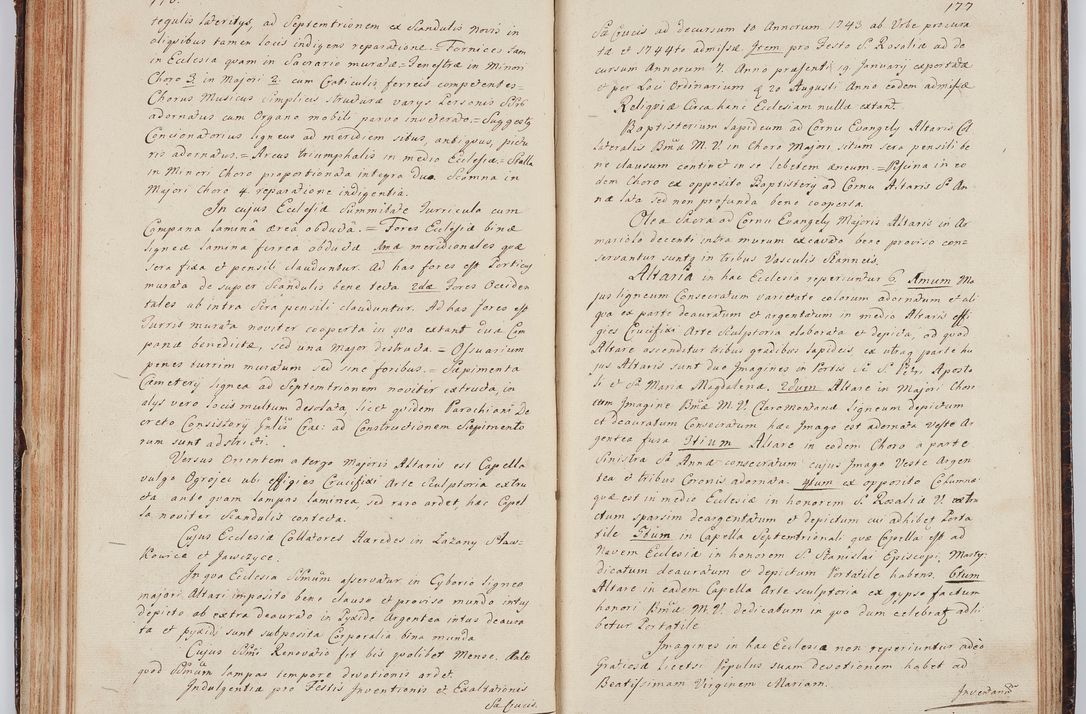 tegulis lateritys, ad Septemtrionem ex Scandulis novis in
aliquibus tamen locis indigens reparatione. Fornices tam
in Ecclesia quam in Sacrario muratæ = Fenestræ in Minori
Choro 3 in Majori 2. cum Craticulis ferreis competentes =
Chorus Musicus simplicis structuræ varys
adornatus cum Organo mobili parvo inveterato = Suggestg
Concionatorius ligneus ad meridiem situs, antiquus, pictu
ris adornatus. = Arcus triumphalis in medio Ecclesiæ = Stalla
in Minori Choro proportionata integra duo. Scamna in
Majori Choro 4 reparatione indigentia.
In cujus Ecclesiæ Summitate Turricula cum
Campana lamina ærea obducta. = Fores Ecclesiæ binæ
ligneæ lamina ferrea obductæ 1mæ meridionales quæ
sera fixa et pensili clauduntur. Ad has fores est Porticg
murata de super Scandulis bene tecta 2dæ Fores Occiden
tales ab intra Sera pensili clauduntur. Ad has fores est
Turris murata noviter cooperta in qua extant duæ Cam
panæ benedictæ, sed una major distructa. = Ossuarium
penes turrim muratum sed sine foribus. = Sæpimenta
Cæmetery lignea ad Septemtrionem noviter extructa, in
alys vero locis multum desolata, licet quidem Parochiani De
creto Consistory Crac: ad Constructionem Sæpimento
rum sunt adstricti.
Versus Orientem a tergo Majoris Altaris est Capella
vulgo Ogrojec ubi effigies Crucifixi Arte Sculptoria extru
cta ante quam lampas laminea, sed raro ardet, hæc Capel
la noviter Scandulis contecta.
Cujus Ecclesiæ Collatores Hæredes in Lazany Sław-
kowice et Jawczyce.
In qua Ecclesia asservatur in Cyborio ligneo
majori Altari imposito bene clauso et proviso mundo intus
depicto ab extra deaurato in Pyxide Argentea intus deaura
ta et pyxidi sunt subposita Corporalia bina munda
Cujus Renovatio fit bis quolibet Mense. Ante
quod lampas tempore devotionis ardet.
Indulgentia pro Festis Inventionis et Exaltationis
Sæ Crucis.
177
Sæ Crucis ad decursum 10 Annorum 1743 ab Urbe procura
tæ et 1744to admissæ Item pro Festo S. Rosaliæ ad de
cursum Annorum 7. Anno præsenti 19 January exportatæ
et per Loci Ordinarium d. 20 Augusti Anno eodem admissæ
Reliquiæ Circa hanc Ecclesiam nullæ extant.
Baptisterium lapideum ad Cornu Evangely Altaris Col
lateralis Bmæ M. V. in Choro Majori situm sera pensili be
ne clausum continet in se lebetem æneum. = Piscina in eo
dem Choro ex opposito Baptistery ad Cornu Altaris S. An
næ lata sed non profunda bene cooperta.
Olea Sacra ad Cornu Evangely Majoris Altaris in Ar
mariolo decenti intra murum excavato bene proviso con-
servantur suntq in tribus Vasculis stanneis.
Altaria in hac Ecclesia reperiuntur 6. 1mum Ma
jus ligneum Consecratum varietate colorum adornatum et ali
qua ex parte deauratum et argentatum in medio Altaris effi
gies Crucifixi Arte Sculptoria elaborata et depicta, ad quod
Altare ascenditur tribus gradibus lapideis, ex utraq parte hu
jus Altaris sunt duo Imagines in Portis S. Petri Aposto
li et Sæ Maria Magdalenæ, 2dum Altare in Majori Choro
cum Imagine Bmæ M. V. Claromontanæ ligneum depictum
et deauratum Consecratum hæc Imago est adornata veste Ar
gentea fusa 3tium Altare in eodem Choro a parte
Sinistra Sæ Annæ consecratum cujus Imago Veste Argen
tea et tribus Coronis adornata. 4tum ex opposito Columnæ
quæ est in medio Ecclesiæ in honorem S. Rosaliæ V. extru
ctum sparsim deargentatum et depictum cui adhibet Porta
tile 5tum in Capella Septentrionali quæ Capella est ad
Navem Ecclesiæ in honorem S. Stanislai Episcopi Marty:
dicatum deauratum et depictum Portatile habens. 6tum
Altare in eadem Capella Arte sculptoria ex gypso factum
honori Bmæ M. V. dedicatum in quo dum celebrat adhi
betur Portatile
Imagines in hac Ecclesia non reperiuntur adeo
Gratiosæ licetsi Populus suam devotionem habet ad
Beatissimam Virginem Mariam.
Inventariū